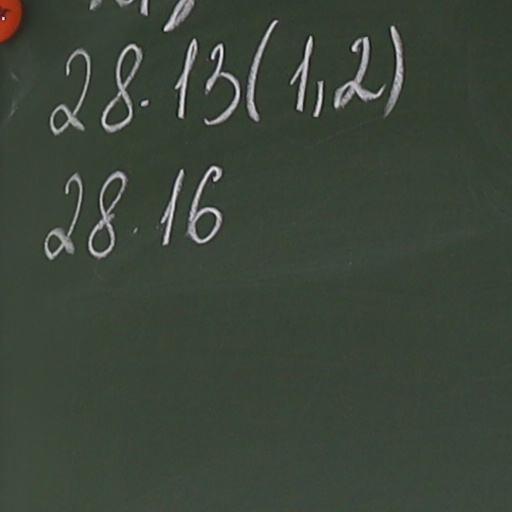 28.13(1,2)
28.16